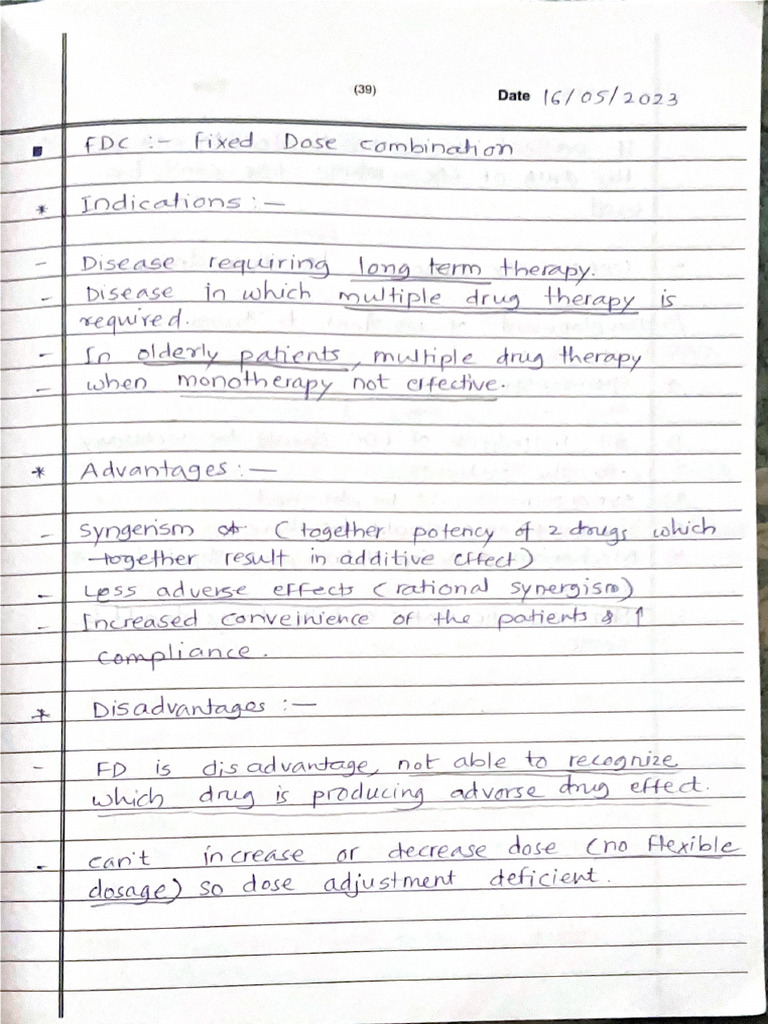 (39)
Date 16/05/2023
FDC :- Fixed Dose combination
* Indications :-
- Disease requiring long term therapy.
- Disease in which multiple drug therapy is
required.
- In olderly patients, multiple drug therapy
- when monotherapy not effective.
* Advantages :-
- Syngerism of (together potency of 2 drugs which
together result in additive effect)
- Less adverse effects (rational synergism)
- Increased conveinience of the patients & ↑
compliance.
* Disadvantages :-
- FD is disadvantage, not able to recognize
which drug is producing adverse drug effect.
- can't increase or decrease dose (no flexible
dosage) so dose adjustment deficient.